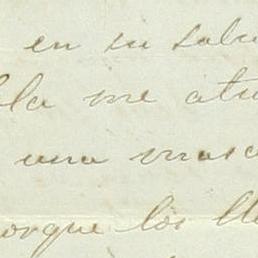 en su salu
lla me atu
una masc
porque los lle